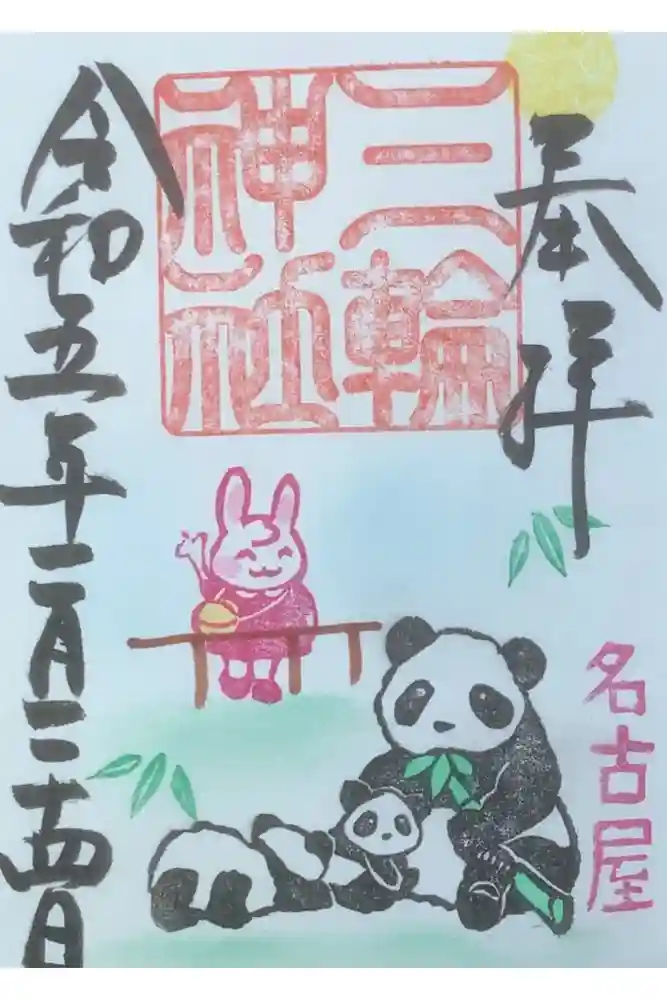 奉拝
三輪
神社
名古屋
令和五年二月二十四日